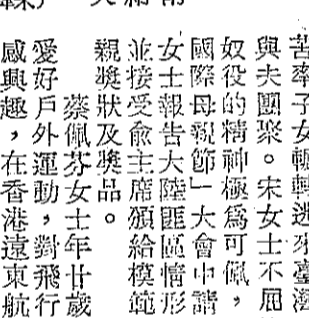 苦率子女輾轉逃來臺灣
與夫團聚。宋女士不屈
奴役的精神極爲可佩，
國際母親節」大會中請
女士報告大陸匪區情形
並接受兪主席頒給模範
親獎狀及獎品。
蔡佩芬女士年廿歲
愛好戶外運動，對飛行
感興趣，在香港遠東航